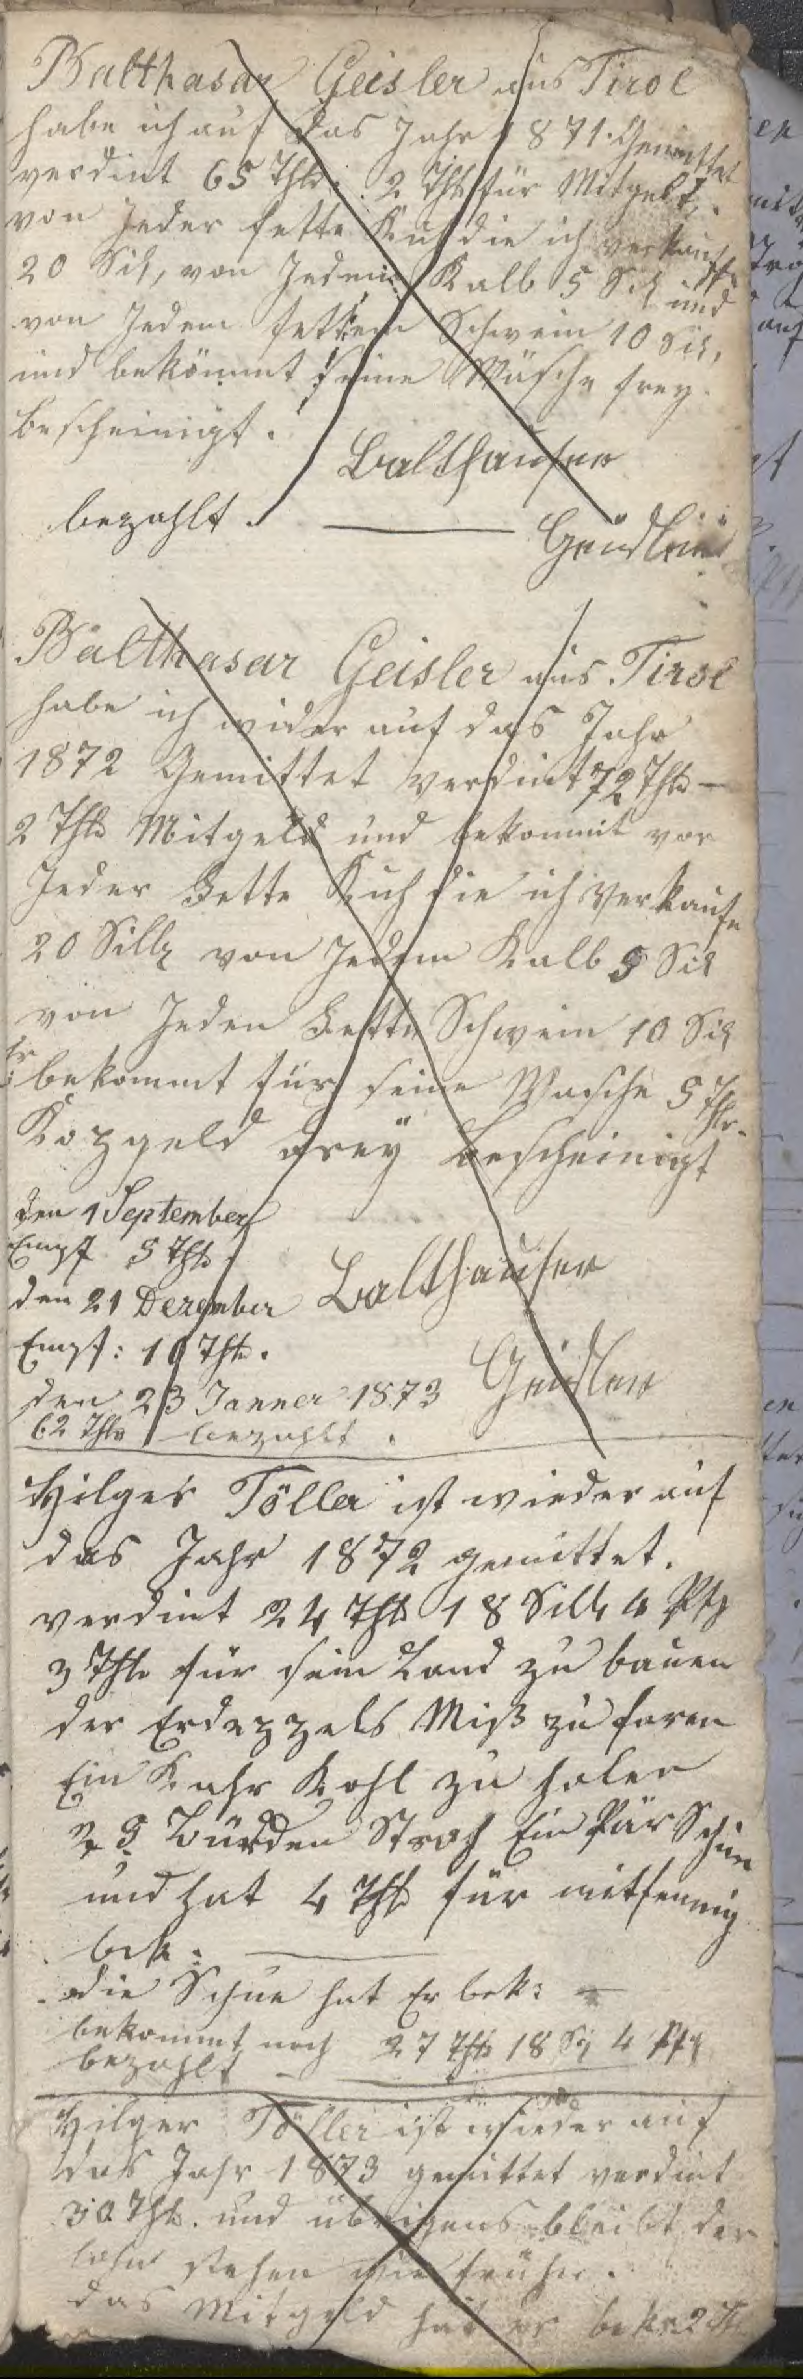 Balthasar Geisler aus Tirol
habe ich auf das Jahr 1871. Gemittet
verdint 65 Thlr. 2 Thlr für Mitgeld,
von Jeder fette Kuh die ich verkaufe
20 Sil, von Jedem Kalb 5 Sil und
von Jedem fettem Schwein 10 Sil,
und bekömmt seine Wäsche frey.
bescheinigt.
Balthauser
bezahlt. Geisler
Balthasar Geisler aus Tirol
habe ich wider auf das Jahr
1872 Gemittet verdint 72 Thlr
2 Thlr Mitgeld und bekommt vor
Jeder Fette Kuh die ich verkaufe
20 Sillg von Jedem Kalb 5 Sil
von Jeden Fette Schwein 10 Sil
Er bekommt für seine Wasche 5 Thlr.
Kopgeld frey bescheinigt
den 1 September
Empf 5 Thlr.
den 21 Dezember Balthauser
Empf: 10 Thlr.
den 23 Janner 1873 Geisler
62 Thlr bezahlt.
Hilger Töller ist wieder auf
das Jahr 1872 gemittet.
verdint 24 Thlr 18 Sillg 4 Pfg
3 Thlr für sein Land zu bauen
der Erdeppels Miß zu faren
Ein Kahr Kohl zu holen
25 Bürden Stroh Ein Pär Schue
und hat 4 Thlr für mitfennig
bek:
die Schue hat Er bek:
bekommt noch 27 Thlr 18 Sg 4 Pfg
bezahlt
Hilger Töller ist wieder auf
das Jahr 1873 gemittet verdint
30 Thlr. und übrigens bleibt der
lohn stehen wie früher.
das Mitgeld hat er bek: 2 Th